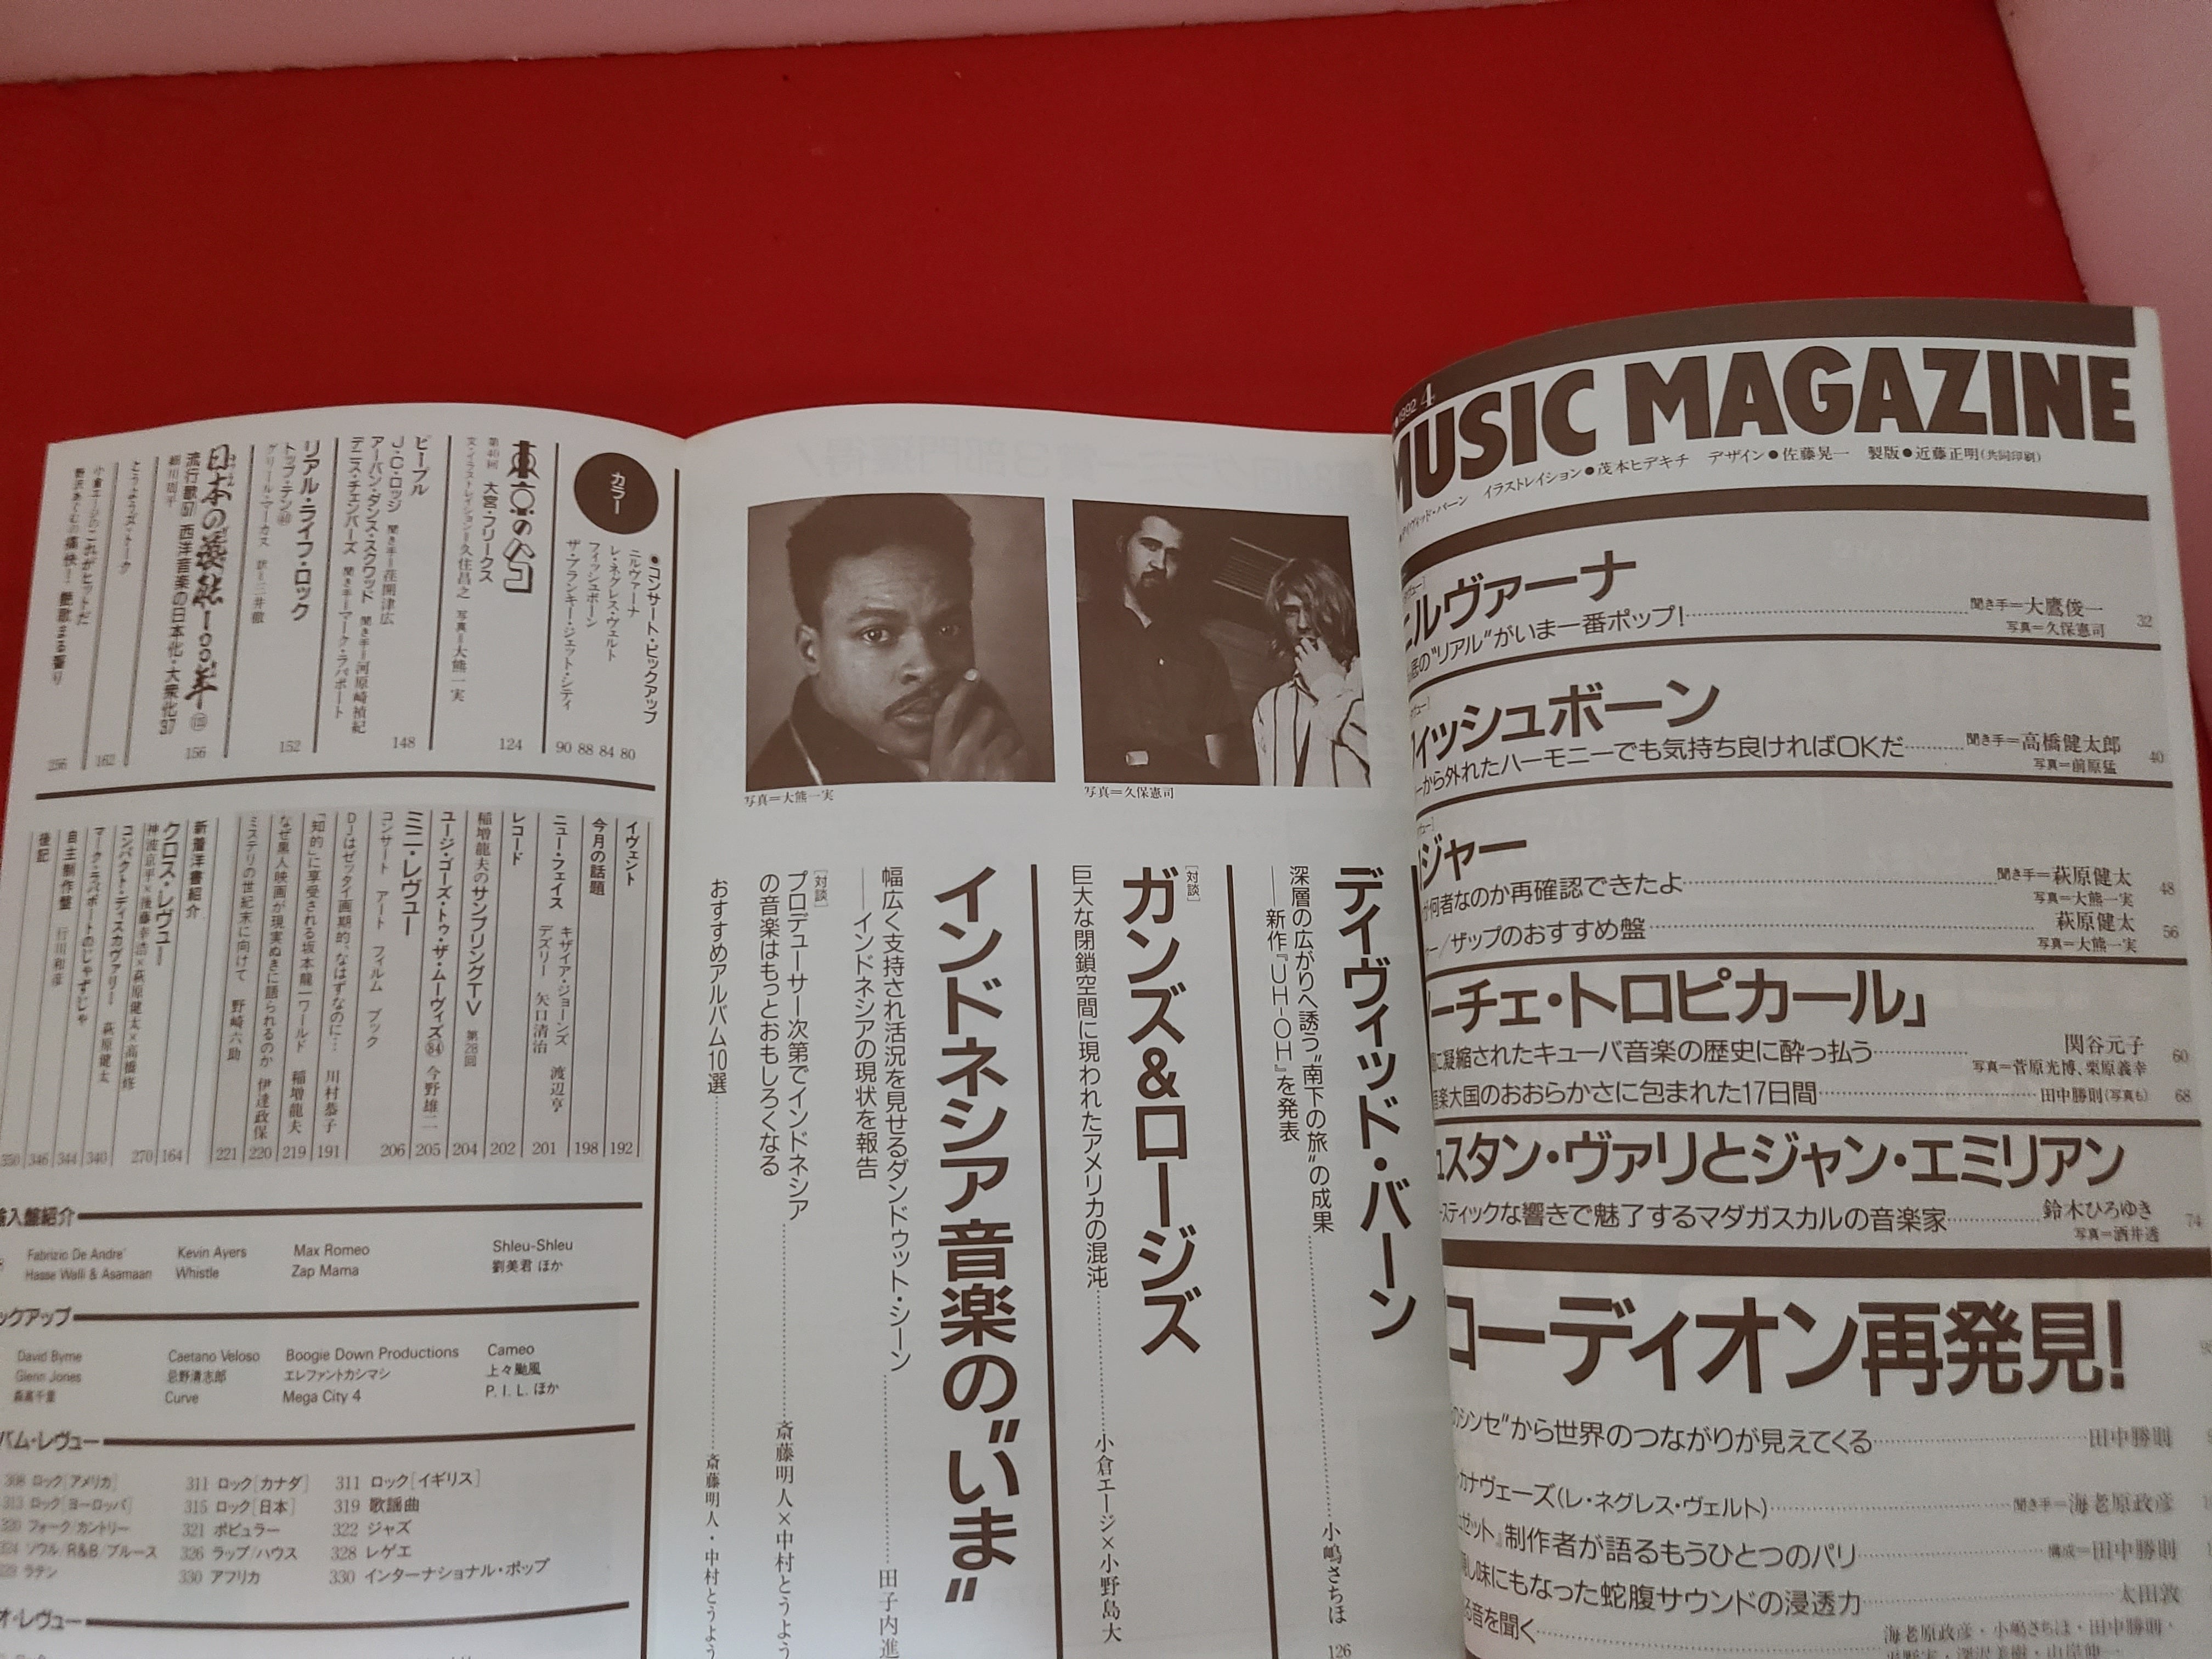 1992 4
MUSIC MAGAZINE
イラストレイション●茂本ヒデキチ デザイン●佐藤晃一 製版●近藤正明(共同印刷)
ニルヴァーナ
の"リアル"がいま一番ポップ!
聞き手=大鷹俊一
写真=久保憲司
32
フィッシュボーン
から外れたハーモニーでも気持ち良ければOKだ
聞き手=高橋健太郎
写真=前原猛
40
ジャー
何者なのか再確認できたよ
聞き手=萩原健太
写真=大熊一実
48
ー/ザップのおすすめ盤
萩原健太
写真=大熊一実
56
ーチェ・トロピカール」
に凝縮されたキューバ音楽の歴史に酔っ払う
関谷元子
写真=菅原光博、栗原義幸
60
音楽大国のおおらかさに包まれた17日間
田中勝則(写真も)
68
スタン・ヴァリとジャン・エミリアン
スティックな響きで魅了するマダガスカルの音楽家
鈴木ひろゆき
写真=酒井透
74
コーディオン再発見!
シンセ"から世界のつながりが見えてくる
田中勝則
カナヴェーズ(レ・ネグレス・ヴェルト)
聞き手=海老原政彦
ゼット』制作者が語るもうひとつのパリ
構成=田中勝則
味にもなった蛇腹サウンドの浸透力
太田敦
音を聞く
海老原政彦・小嶋さちほ・田中勝則・
写真=大熊一実
写真=久保憲司
デイヴィッド・バーン
深層の広がりへ誘う"南下の旅"の成果
──新作『UH-OH』を発表
小嶋さちほ
126
[対談]
ガンズ&ローゼズ
巨大な閉鎖空間に現われたアメリカの混沌
小倉エージ×小野島大
インドネシア音楽の"いま"
幅広く支持され活況を見せるダンドゥット・シーン
──インドネシアの現状を報告
田子内進
[対談]
プロデューサー次第でインドネシア
の音楽はもっとおもしろくなる
斎藤明人×中村とうよう
おすすめアルバム10選
斎藤明人・中村とうよう
カラー
●コンサート・ピックアップ
ニルヴァーナ
レ・ネグレス・ヴェルト
フィッシュボーン
ザ・ブランキー・ジェット・シティ
90 88 84 80
東京のハコ
第46回 大宮・フリークス
文・イラストレイション=久住昌之 写真=大熊一実
124
ピープル
J・C・ロッジ 聞き手=花開津広
アーバン・ダンス・スクワッド 聞き手=河原崎禎紀
デニス・チェンバーズ 聞き手=マーク・ラパポート
148
リアル・ライフ・ロック
トップ・テン
グリール・マーカス 訳=三井徹
152
日本の芸能一〇〇年
流行歌57 西洋音楽の日本化・大衆化37
細川周平
156
とうようズ・トーク
162
小倉エージのこれがヒットだ
256
イヴェント
192
今月の話題
198
ニュー・フェイス
キザイア・ジョーンズ 渡辺亨
デズリー 矢口清治
201
レコード
202
稲増龍夫のサンプリングTV 第28回
204
ユージ・ゴーズ・トゥ・ザ・ムーヴィズ84 今野雄二
205
ミニ・レヴュー
コンサート アート フィルム ブック
206
DJはゼッタイ画期的、なはずなのに… 川村恭子
191
「知的」に享受される坂本龍一ワールド 稲増龍夫
219
なぜ黒人映画が現実ぬきに語られるのか 伊達政保
220
ミステリの世紀末に向けて 野崎六助
221
新着洋書紹介
164
クロス・レヴュー
神波京平×後藤幸浩×萩原健太×高橋修
270
コンパクト・ディスカヴァリー 萩原健太
340
マーク・ラパポートのじゃずじゃ
344
自主制作盤 行川和彦
346
後記
350
輸入盤紹介
Fabrizio De Andre'
Hasse Walli & Asamaan
Kevin Ayers
Whistle
Max Romeo
Zap Mama
Shleu-Shleu
劉美君 ほか
ックアップ
David Byrne
Glenn Jones
森高千里
Caetano Veloso
忌野清志郎
Curve
Boogie Down Productions
エレファントカシマシ
Mega City 4
Cameo
上々颱風
P. I. L. ほか
バム・レヴュー
308 ロック[アメリカ]
311 ロック[カナダ]
311 ロック[イギリス]
313 ロック[ヨーロッパ]
315 ロック[日本]
319 歌謡曲
320 フォーク/カントリー
321 ポピュラー
322 ジャズ
324 ソウル/R&B/ブルース
326 ラップ/ハウス
328 レゲエ
329 ラテン
330 アフリカ
330 インターナショナル・ポップ
オ・レヴュー